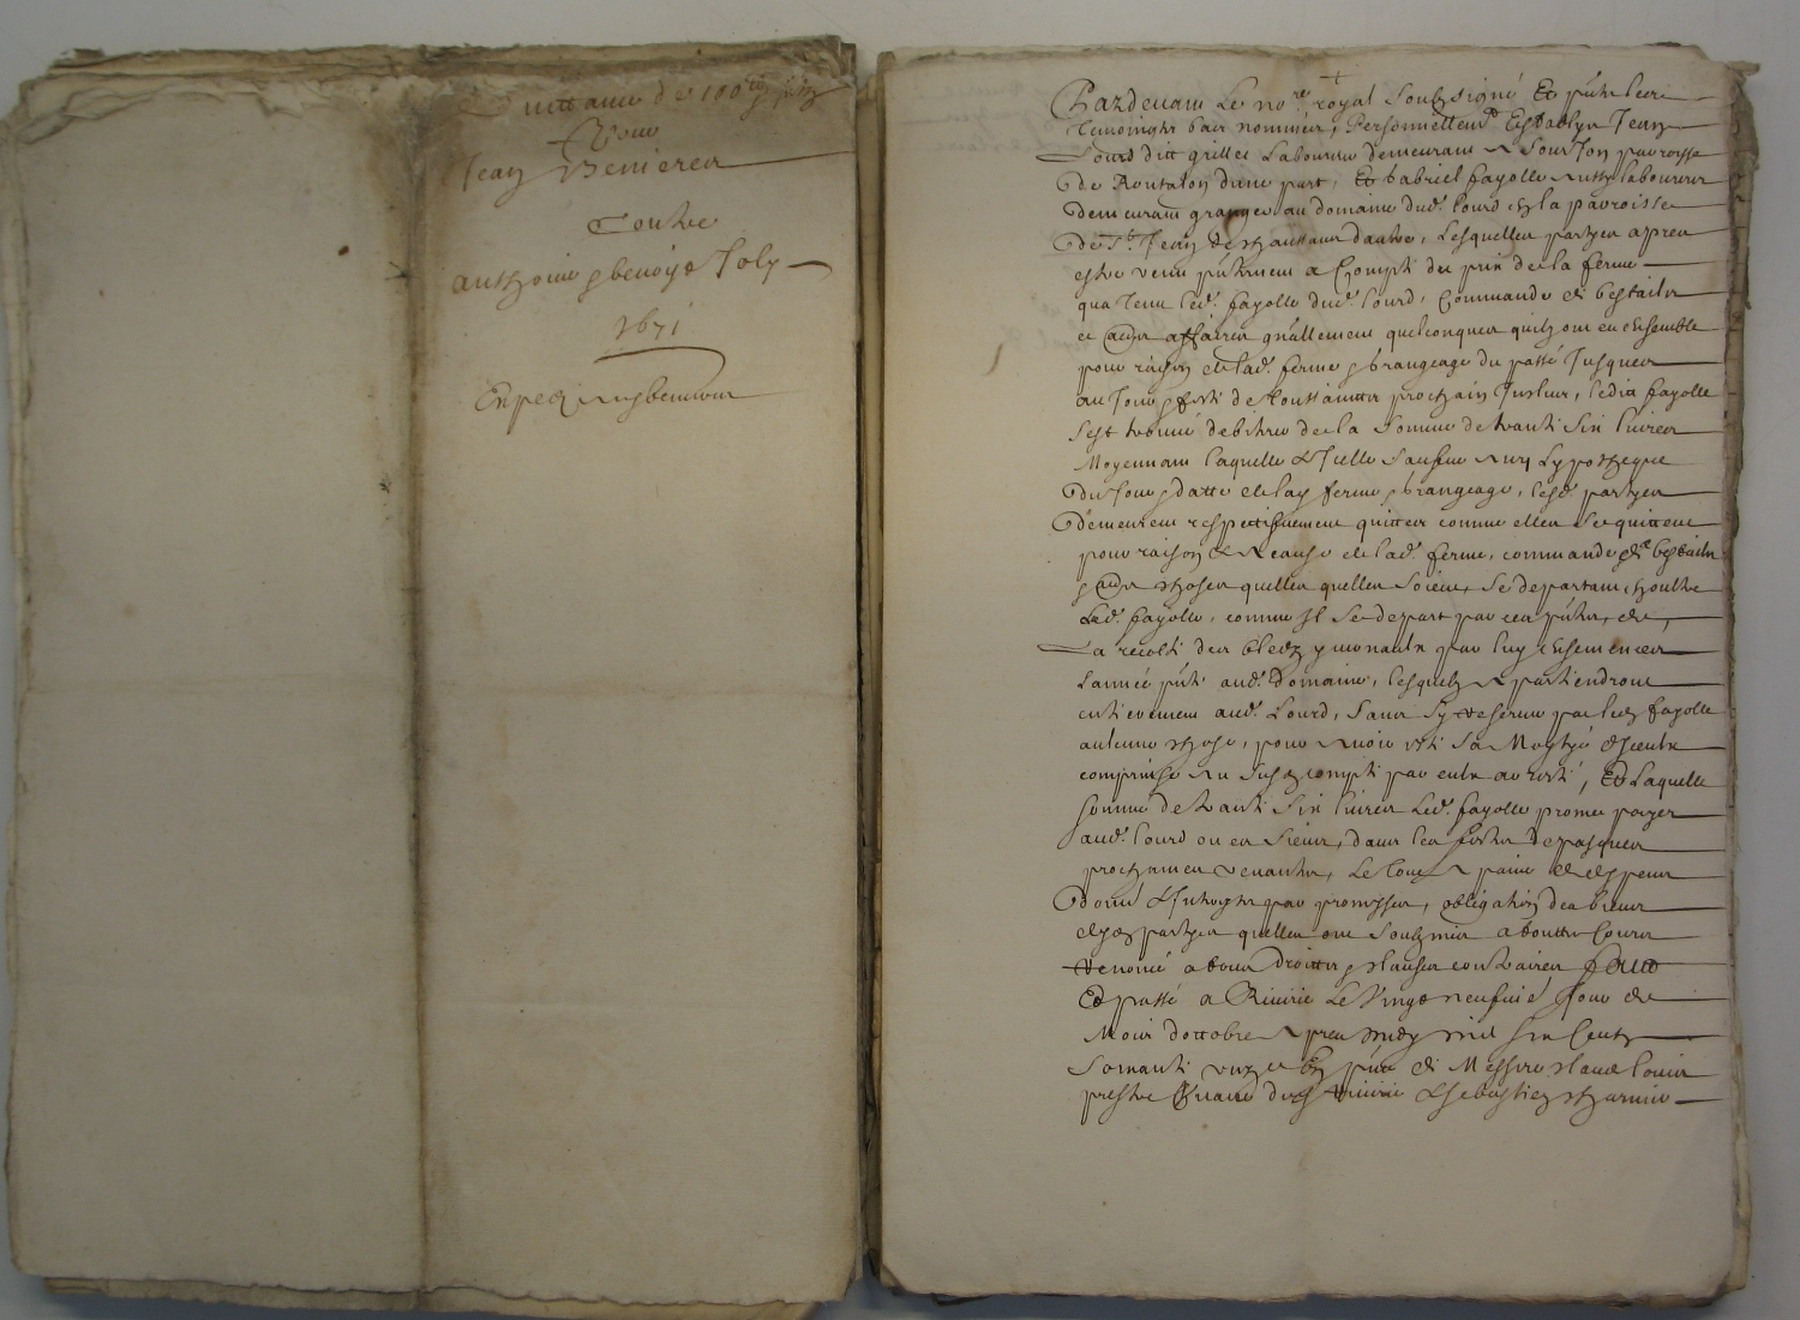 Quittance de 100
Pour
Jean Benieres
Contre
anthoine & benoist Joly
1671
Expedié
Pardevant Le no.re royal soubzsigné Et pńtz les
temoingtz bas nommés, Personnellemt Estably Jean
Lourd ditt grilles Laboureur demeurant a Sourzon parroisse
de Rontalon dune part, Et Gabriel fayolle aussy laboureur
demeurant granger au domaine dud. Lourd en la parroisse
de St. Jean de chaussan dautre, Lesquelles partyes apres
estre venu pńtement a Compte du prix de la ferme
qua tenu led. fayolle dud. Lourd, Commande de bestailx
et aultres affaires gńallement quelconques quilz ont eu ensemble
pour raison de lad. ferme & Grangeage du passé Jusques
au Jour & feste de toussainctz prochain Inclus, ledit fayolle
sest trouvé debiteur de la Somme de trante six livres
Moyennant laquelle & Icelle Sauve aux Lypotheque
du Jour & datte de la ferme & Grangeage, lesd. partyes
demeurent respectivement quittes comme elles se quittent
pour raison & a cause de lad. ferme, commande de bestailx
& aultres choses quelles quelles soient, se departant en oultre
Led. fayolle, comme Il se depart par ces pńtes, de
La recolte des bledz par luy ensemencés
Lannée pńte aud. Domaine, lesquelz apartiendront
entierement aud. Lourd, sans sy reserver par led. fayolle
aulcune chose, pour avoir esté sa Moytyé
comprinse au susd. compte par entre eux aresté, Et Laquelle
somme de trante six livres Led. fayolle promet payer
aud. Lourd ou es siens, dans les festes de pasques
prochaines venantes, Le tout a peine de despens
dom̃. & Interestz par promesses, obligation des biens
desd. partyes quelles ont soubzmis a touttes Cours
Renoncé a tous droitz & clauses contraires faict
Et passé a Riverie Le Vingt neufvie Jour de
Mois doctobre apres midy mil six Centz
soixante unze En pńce de Messire claude
prestre & Sebastien